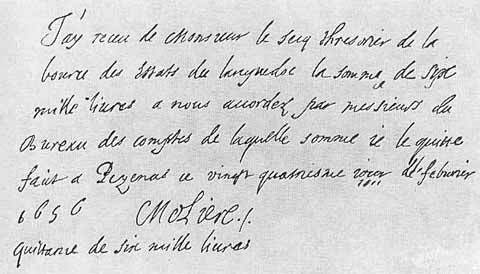 J'ay receu de Monsieur le Secq thresorier de la
bource des Estats du languedoc la somme de six
mille liures a nous accordez par messieurs du
Bureau des comptes de laquelle somme ie le quitte
faict a Pezenas ce vingt quatriesme iour de febvrier
1656 Moliere.
quittance de six mille liures